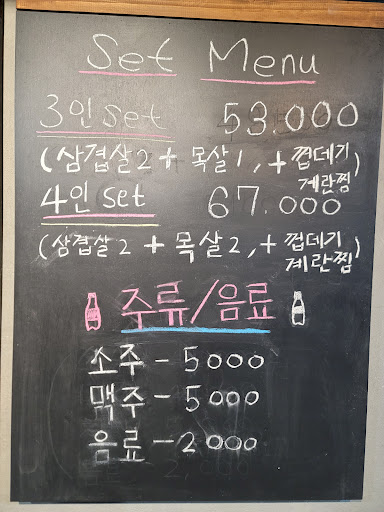 Set Menu
3인 set 53.000
(삼겹살 2 + 목살 1, + 껍데기
계란찜)
4인 set 67.000
(삼겹살 2 + 목살 2, + 껍데기
계란찜)
주류/음료
소주 - 5000
맥주 - 5000
음료 - 2000